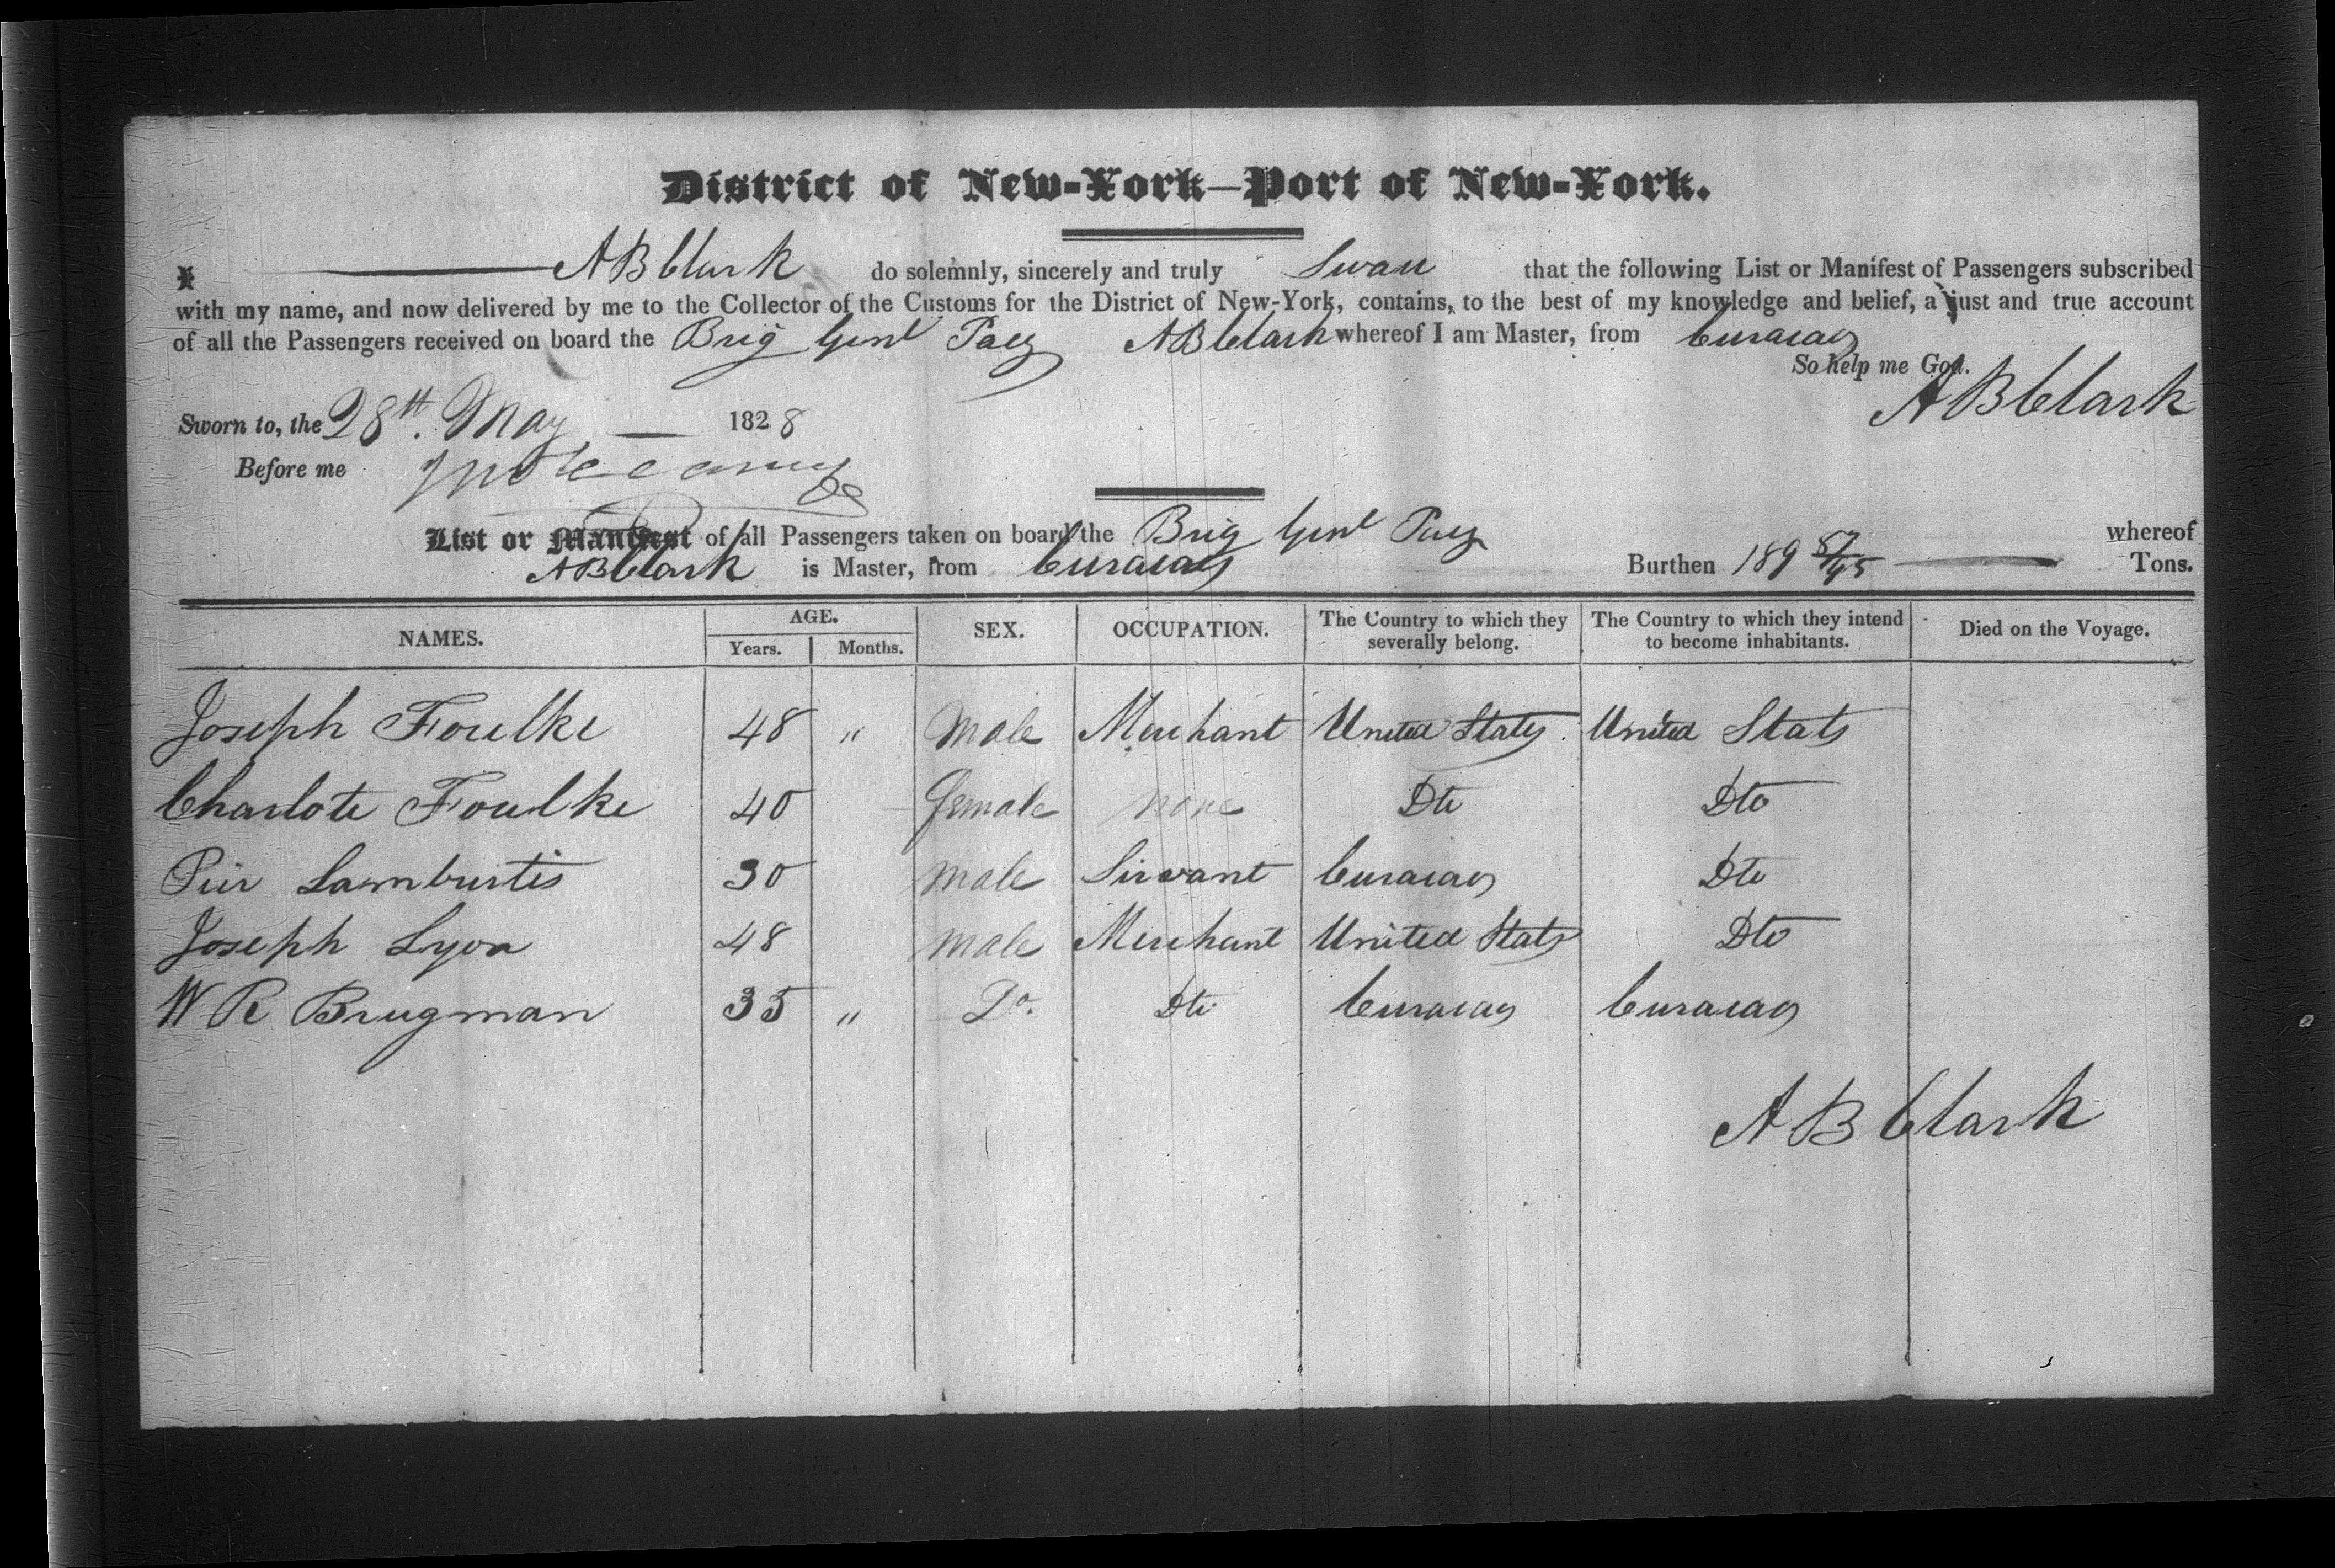 District of New-York—Port of New-York.
I A B Clark do solemnly, sincerely and truly Swear that the following List or Manifest of Passengers subscribed
with my name, and now delivered by me to the Collector of the Customs for the District of New-York, contains, to the best of my knowledge and belief, a just and true account
of all the Passengers received on board the Brig Genl Paez A B Clark whereof I am Master, from Curacao
So help me God.
A B Clark
Sworn to, the 28th May 1828
Before me
List or Manifest of all Passengers taken on board the Brig Genl Paez whereof
A B Clark is Master, from Curacao Burthen 189 87/95 Tons.
NAMES. AGE. Years. Months. SEX. OCCUPATION. The Country to which they severally belong. The Country to which they intend to become inhabitants. Died on the Voyage.
Joseph Foulke 48 " Male Merchant United States United States
Charlote Foulke 40 female none Dto Dto
Pier Lambertis 30 male Servant Curacao Dto
Joseph Lyon 48 male Merchant United States Dto
W R Brugman 35 " Do. Dto Curacao Curacao
A B Clark